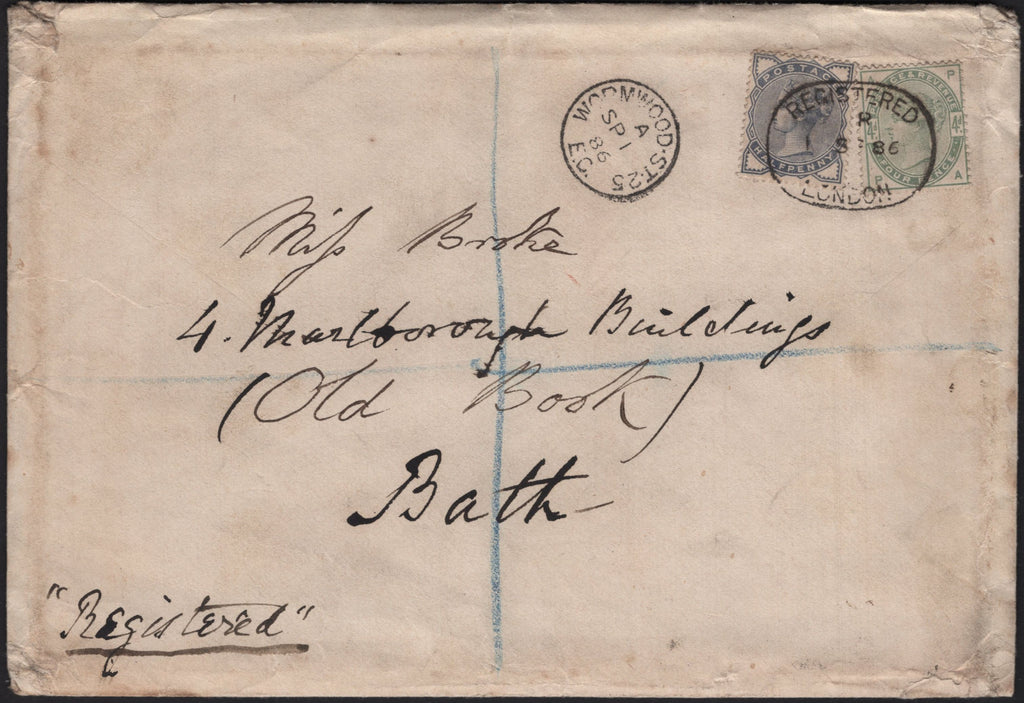 WORMWOOD·ST·25
A
SP 1
86
E.C.
POSTAGE
HALFPENNY
& REVENUE
P
4D
4D
FOUR PENCE
P A
REGISTERED
R
1 SP 86
LONDON
Miss Broke
4. Marlborough Buildings
(Old Book)
Bath
"Registered"